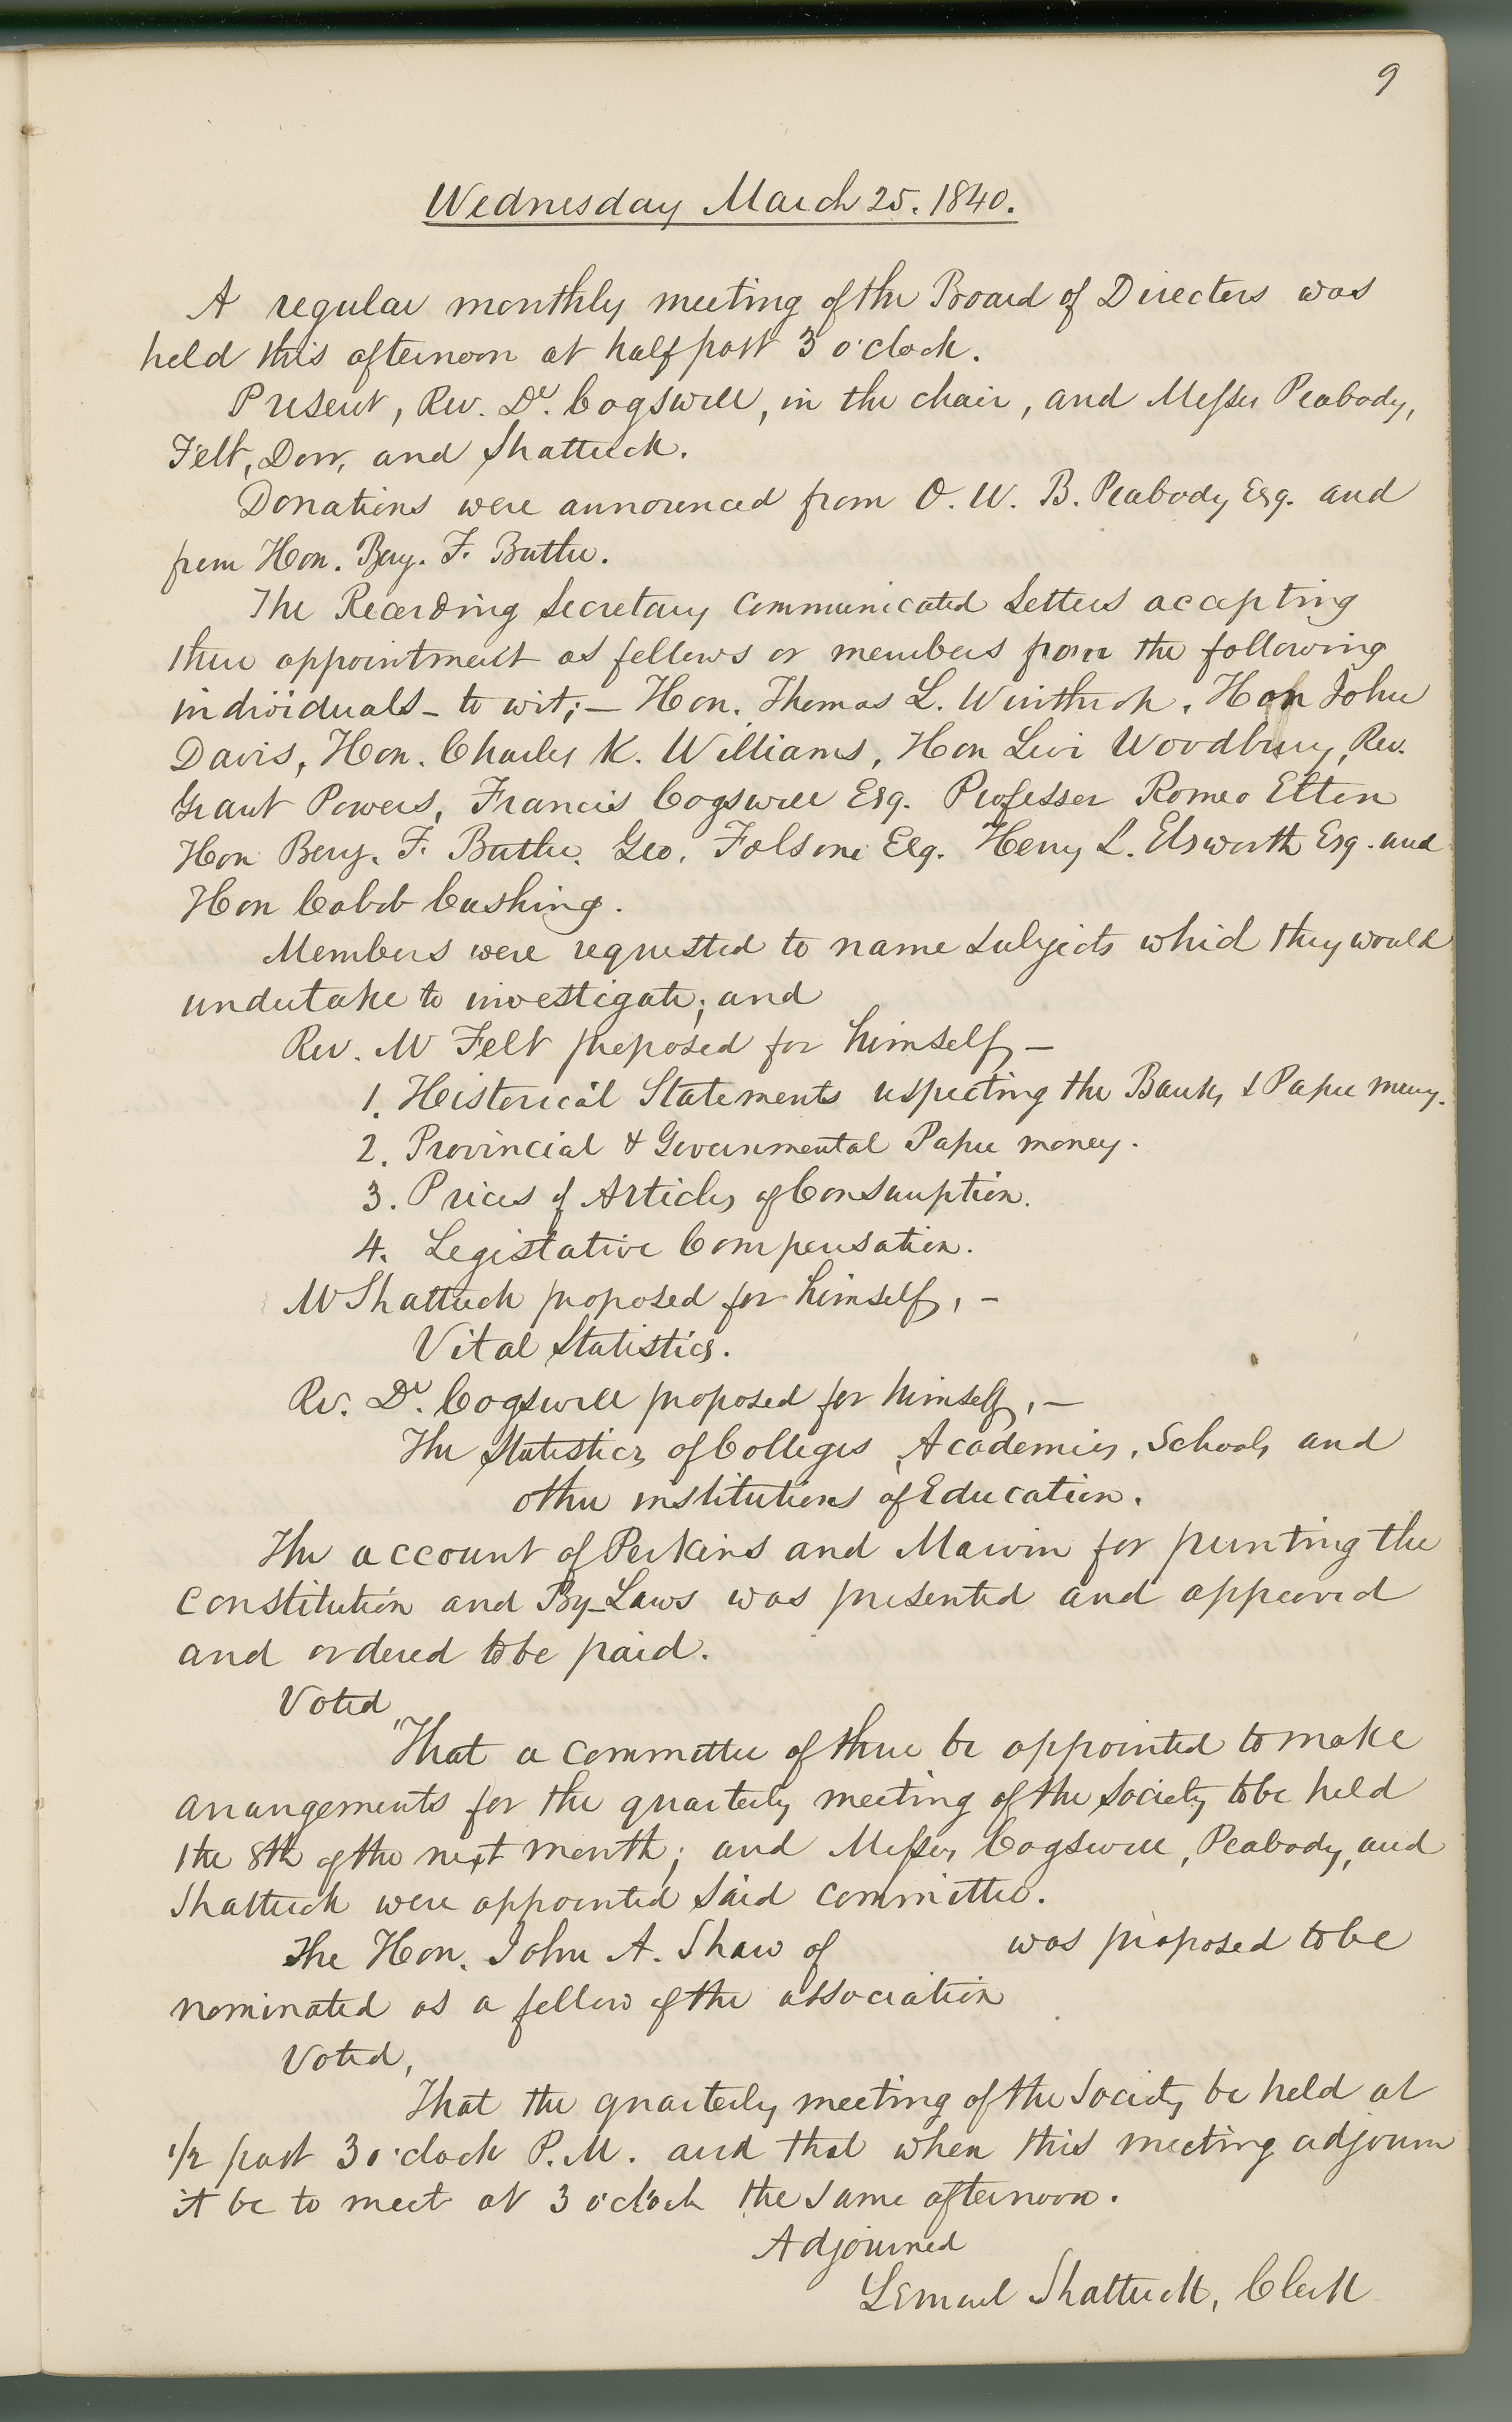 9
Wednesday March 25. 1840.
A regular monthly meeting of the Board of Directors was
held this afternoon at half past 3 o'clock.
Present, Rev. Dr. Cogswell, in the chair, and Messrs Peabody,
Felt, Dow, and Shattuck.
Donations were announced from O. W. B. Peabody Esq. and
from Hon. Benj. F. Butler.
The Recording Secretary communicated Letters accepting
their appointment as fellows or members from the following
individuals - to wit; — Hon. Thomas L. Winthrop, Hon John
Davis, Hon. Charles K. Williams, Hon Levi Woodbury, Rev.
Grant Powers, Francis Cogswell Esq. Professor Romeo Elton
Hon Benj. F. Butler, Geo. Folsom Esq. Henry L. Elsworth Esq. and
Hon Caleb Cushing.
Members were requested to name subjects which they would
undertake to investigate; and
Rev. Mr Felt proposed for himself, —
1. Historical Statements respecting the Banks & Paper money.
2. Provincial & Governmental Paper money.
3. Prices of Articles of Consumption.
4. Legistative Compensation.
Mr Shattuck proposed for himself, -
Vital Statistics.
Rev. Dr. Cogswell proposed for himself, —
The Statistics of Colleges, Academies, Schools and
other institutions of Education.
The account of Perkins and Marvin for printing the
Constitution and By-Laws was presented and approved
and ordered to be paid.
Voted
"That a committee of three be appointed to make
arrangements for the quarterly meeting of the Society to be held
the 8th of the next month; and Messrs Cogswell, Peabody, and
Shattuck were appointed said committee.
The Hon. John A. Shaw of was proposed to be
nominated as a fellow of the association
Voted,
That the quarterly meeting of the Society be held at
1/2 past 3 o'clock P.M. and that when this meeting adjourn
it be to meet at 3 o'clock the same afternoon.
Adjourned
Lemuel Shattuck, Clerk